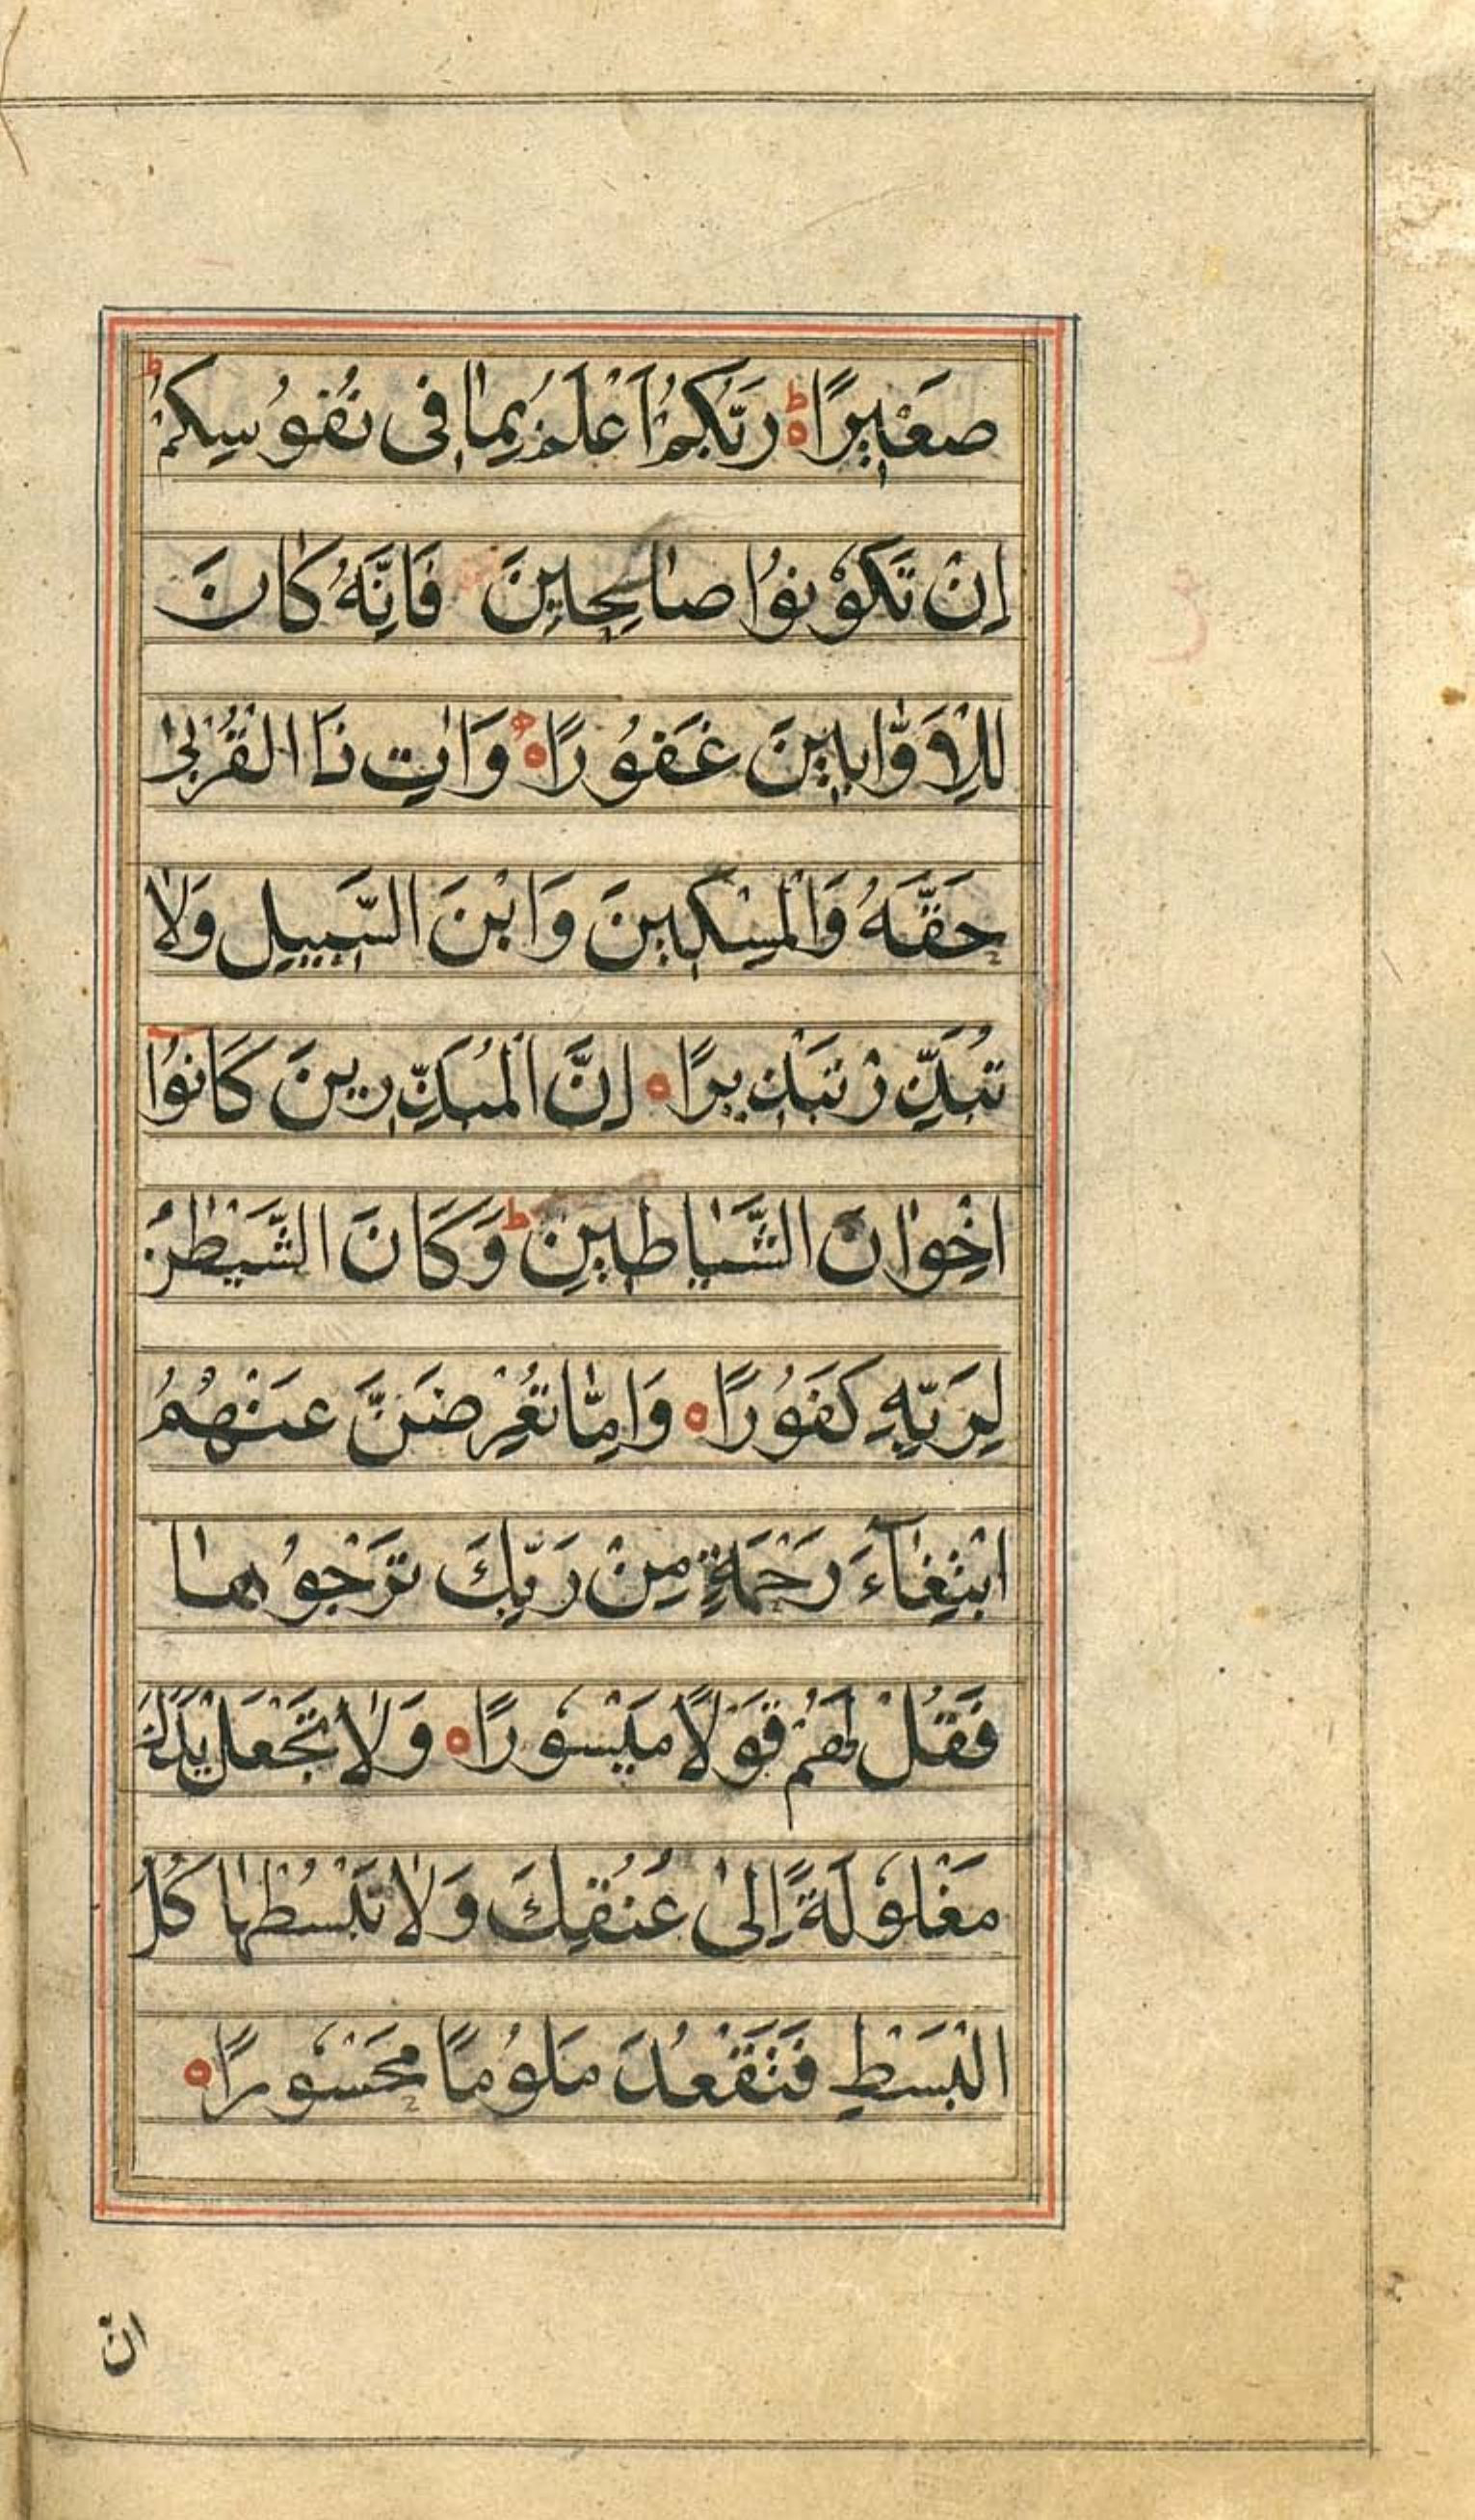 صَغِيرًا ۝ ط رَبُّكُمْ اَعْلَمُ بِمَا فِى نُفُوسِكُمْ ط
اِنْ تَكُوْنُوْا صَالِحِينَ فَاِنَّهُ كَانَ
لِلْاَوَّابِينَ غَفُوْرًا ۝ وَاٰتِ ذَا الْقُرْبٰى
حَقَّهُ وَالْمِسْكِينَ وَابْنَ السَّبِيلِ وَلَا
تُبَذِّرْ تَبْذِيرًا ۝ اِنَّ الْمُبَذِّرِينَ كَانُوْا
اِخْوَانَ الشَّيَاطِينِ ط وَكَانَ الشَّيْطٰنُ
لِرَبِّهِ كَفُوْرًا ۝ وَاِمَّا تُعْرِضَنَّ عَنْهُمُ
ابْتِغَآءَ رَحْمَةٍ مِنْ رَبِّكَ تَرْجُوْهَا
فَقُلْ لَهُمْ قَوْلًا مَيْسُوْرًا ۝ وَلَا تَجْعَلْ يَدَكَ
مَغْلُوْلَةً اِلٰى عُنُقِكَ وَلَا تَبْسُطْهَا كُلَّ
الْبَسْطِ فَتَقْعُدَ مَلُوْمًا مَحْسُوْرًا ۝
انّ